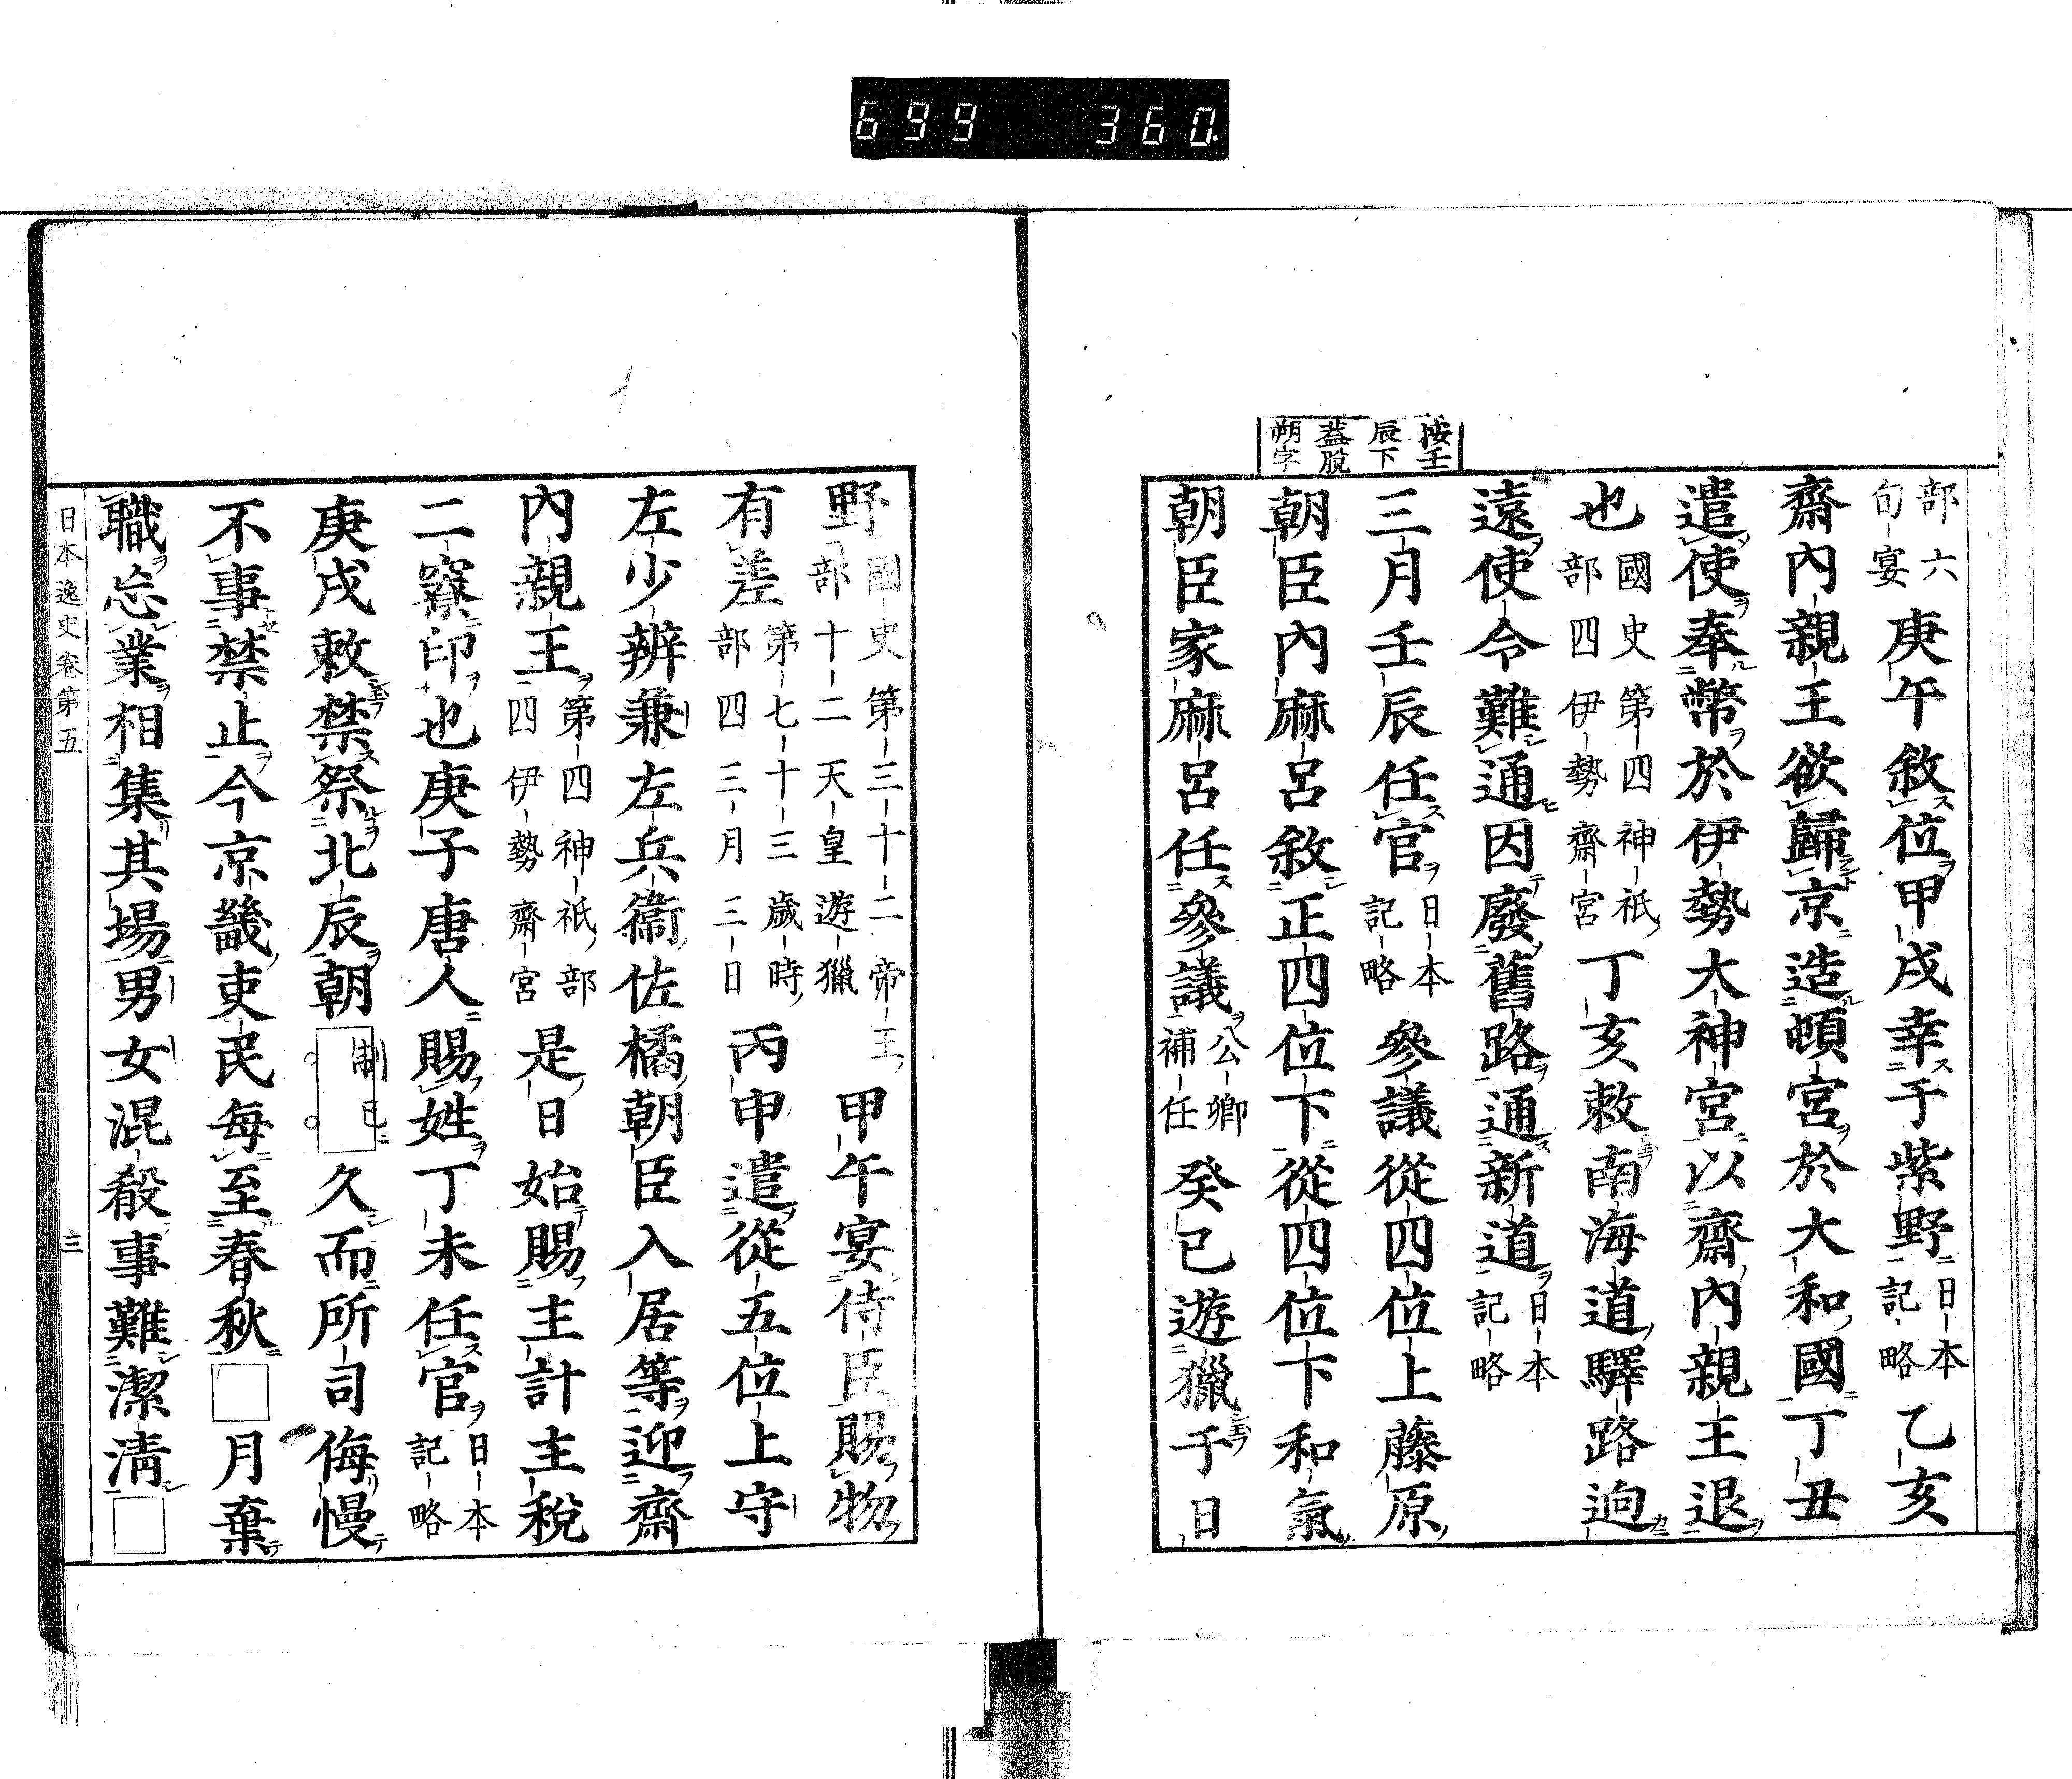 699 360.
按壬
辰下
蓋脫
朔字
部六
旬宴
庚午敘位甲戌幸于紫野
日本
記略
乙亥
齋內親王欲歸京造頓宮於大和國丁丑
遣使奉幣於伊勢大神宮以齋內親王退
也
國史第四神祇
部四伊勢齋宮
丁亥敕南海道驛路逈
遠使令難通因廢舊路通新道
日本
記略
三月壬辰任官
日本
記略
參議從四位上藤原
朝臣內麻呂敘正四位下從四位下和氣
朝臣家麻呂任參議
公卿
補任
癸巳遊獵于日
野
國史第三十二帝王
部十二天皇遊獵
甲午宴侍臣賜物
有差
第七十三歲時
部四三月三日
丙申遣從五位上守
左少辨兼左兵衞佐橘朝臣入居等迎齋
內親王
第四神祇部
四伊勢齋宮
是日始賜主計主稅
二寮印也庚子唐人賜姓丁未任官
日本
記略
庚戌敕禁祭北辰朝
制已
久而所司侮慢
不事禁止今京畿吏民每至春秋□月棄
職忘業相集其場男女混殽事難潔淸□
日本逸史卷第五
三